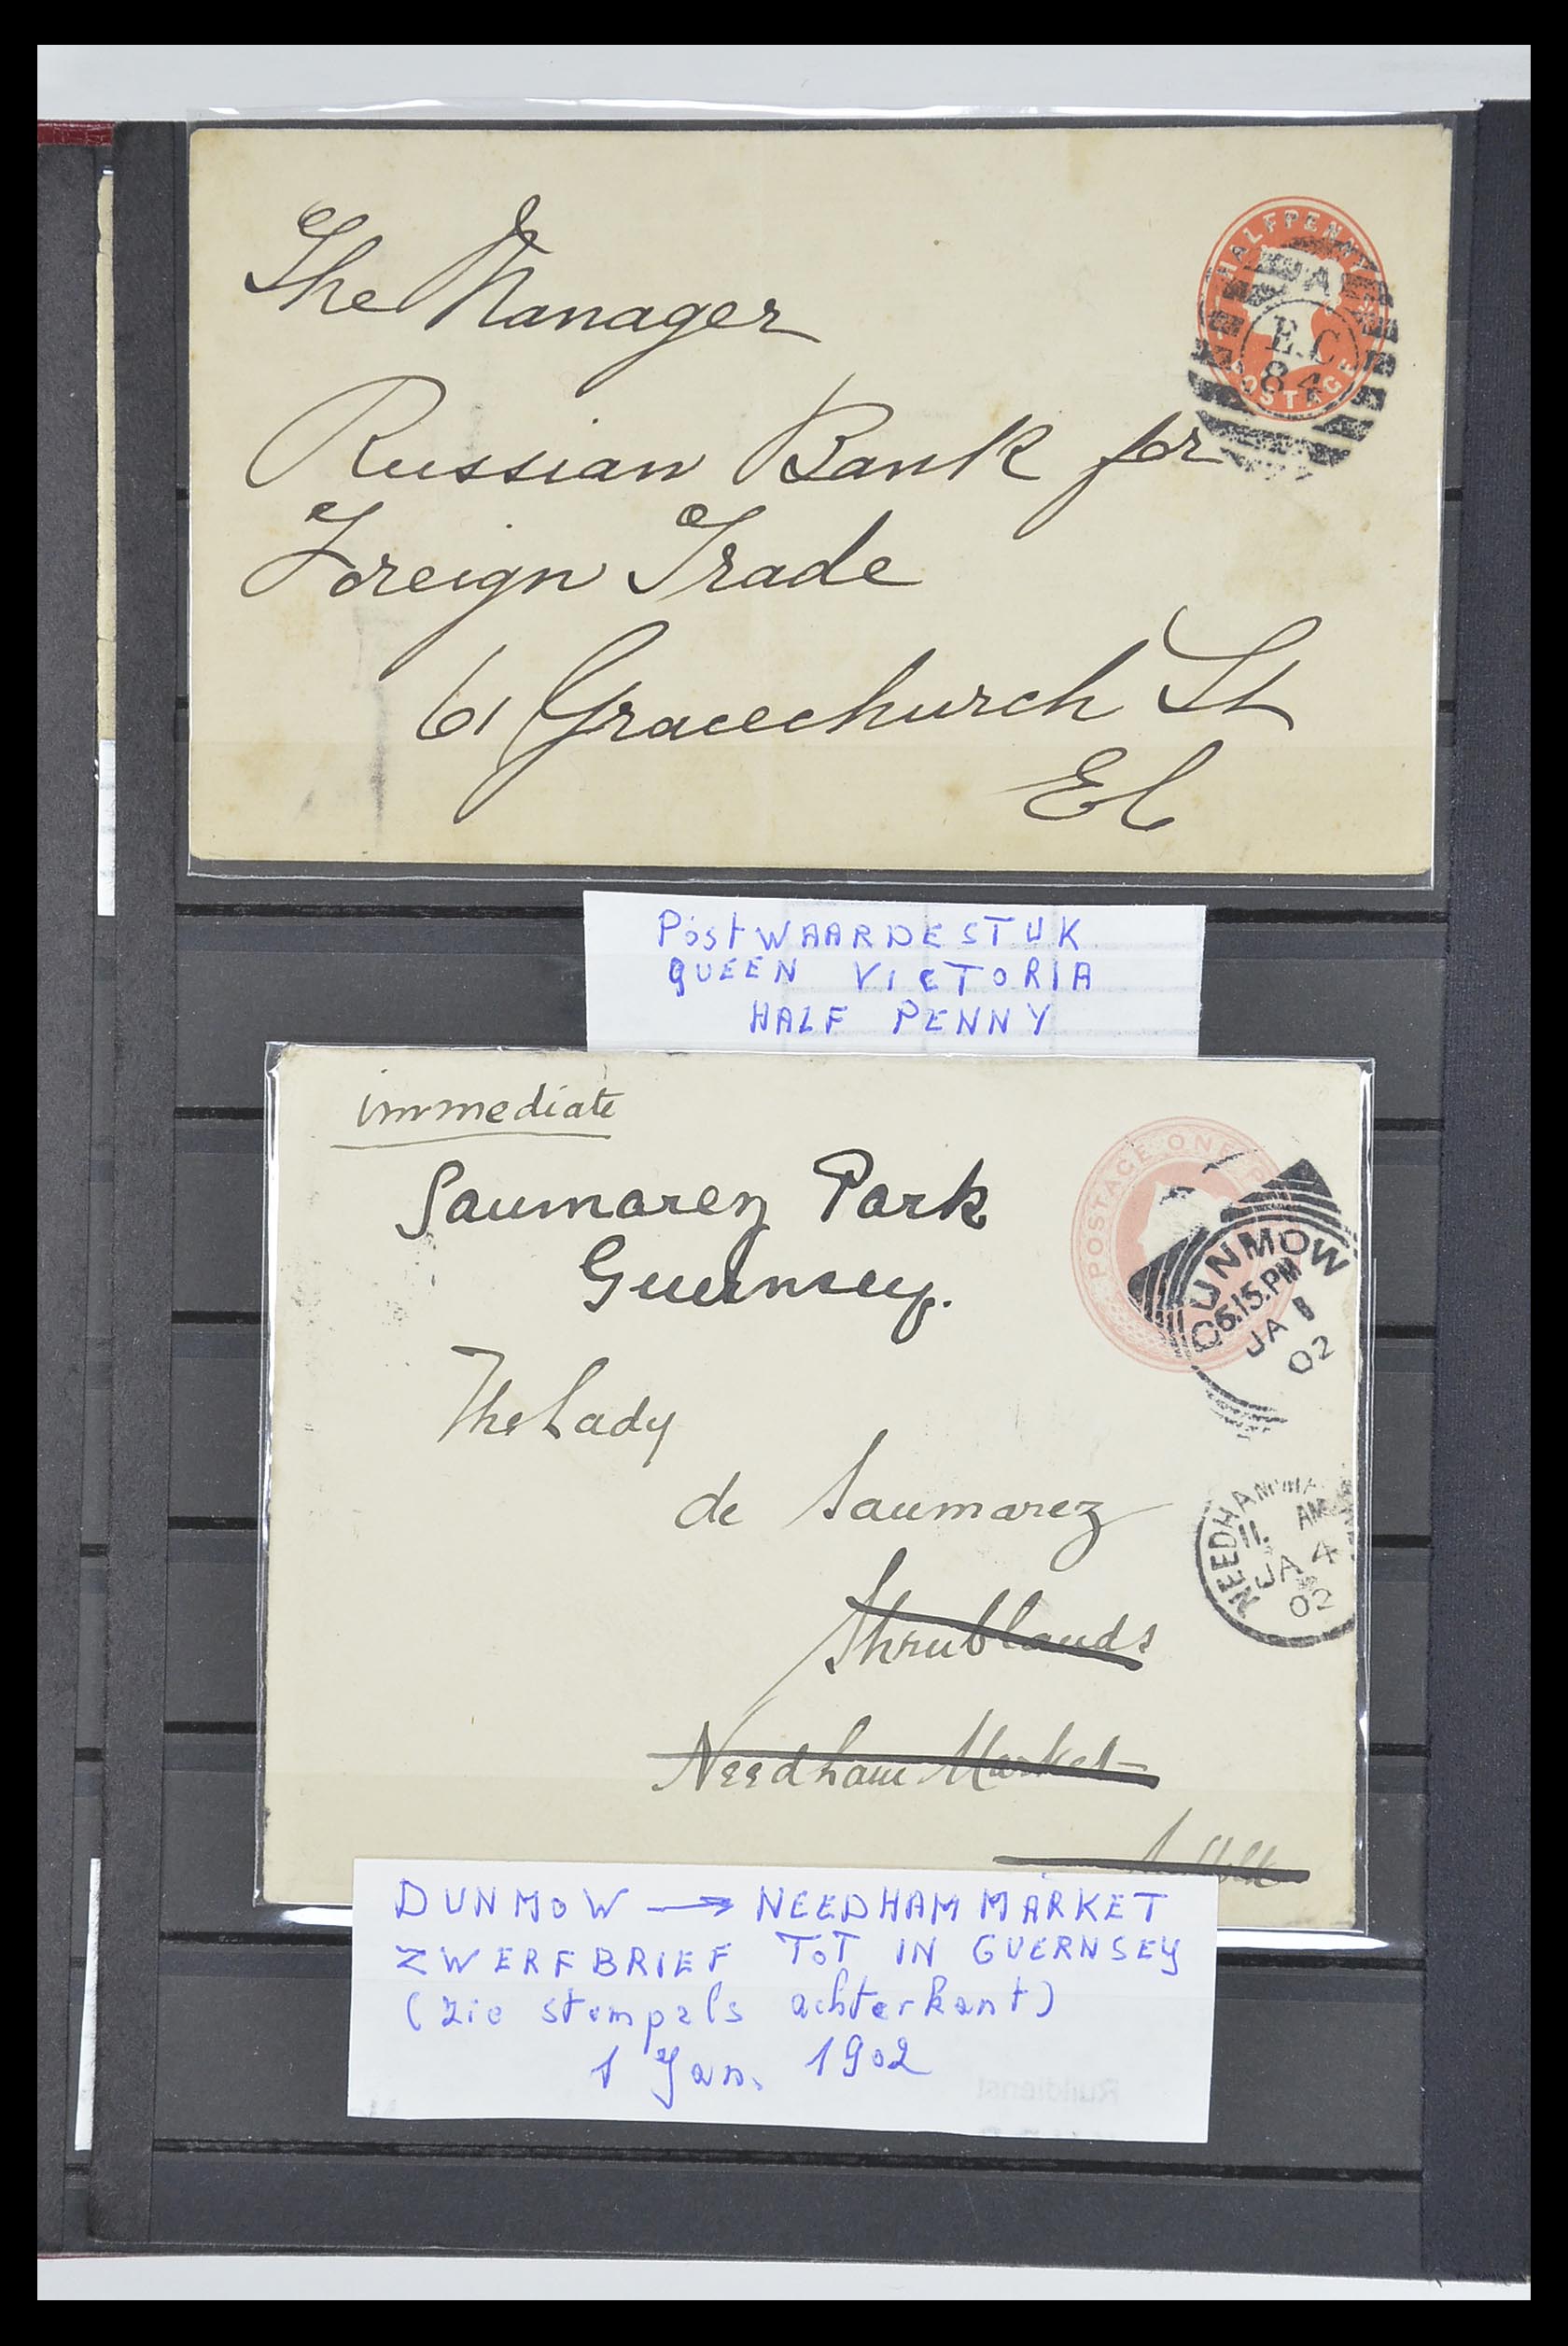 The Manager
Russian Bank for
Foreign Trade
61 Gracechurch St
EC
HALFPENNY
POSTAGE
A
E.C
84
PostWAARDESTUK
QUEEN VICTORIA
HALF PENNY
immediate
Saumarez Park
Guernsey.
The Lady
de Saumarez
Shrublands
Needham Market
POSTAGE ONE P
DUNMOW
6.15.PM
JA 1
02
NEEDHAM MA
11. AM
JA 4
02
DUNMOW → NEEDHAM MARKET
ZWERFBRIEF TOT IN GUERNSEY
(zie stempels achterkant)
1 Jan. 1902
Ruildienst